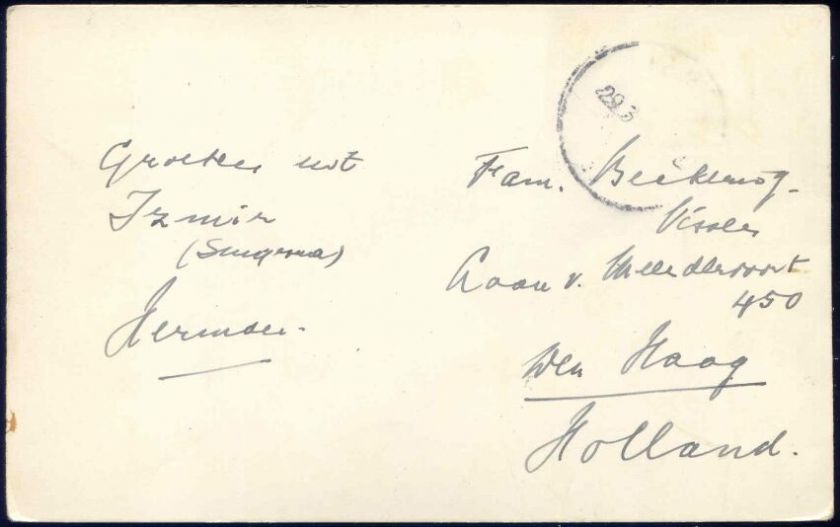 Groeten uit
Izmir
(Smyrna)
Herman.
29.3
Fam.
Visser
Laan v. Meerdervoort
450
Den Haag
Holland.